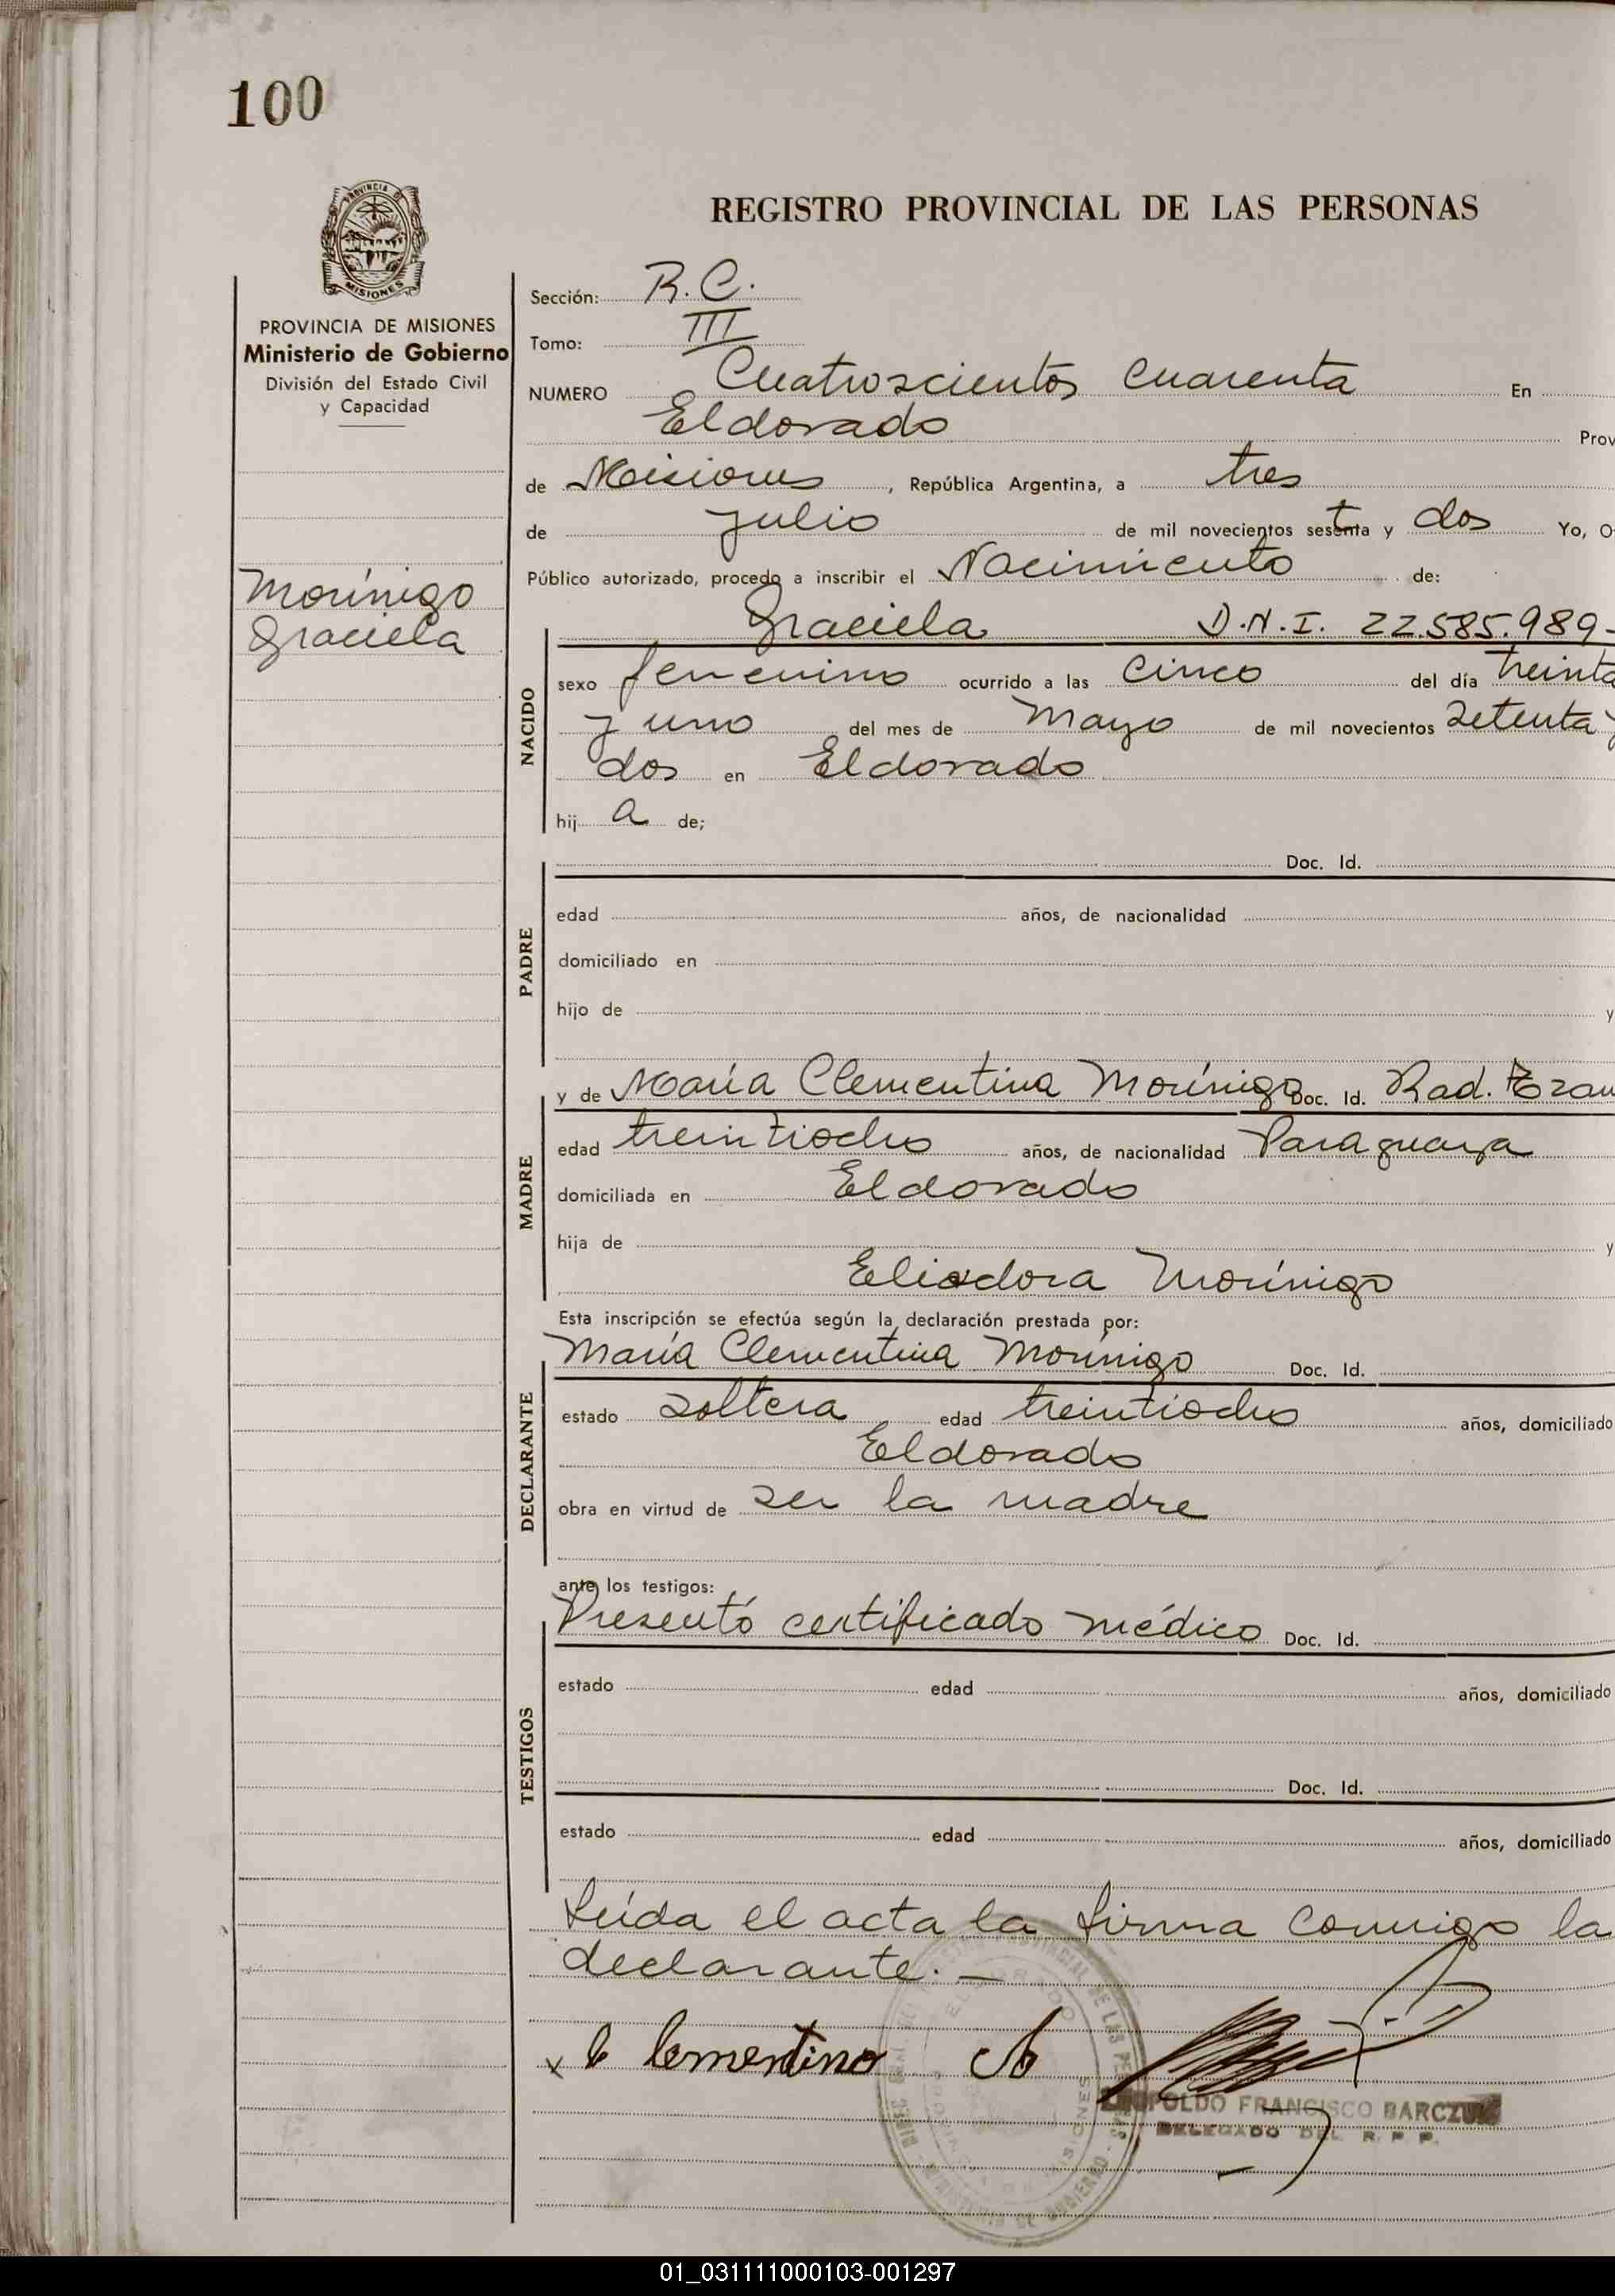 100
PROVINCIA
MISIONES
PROVINCIA DE MISIONES
Ministerio de Gobierno
División del Estado Civil
y Capacidad
Morínigo
Graciela
REGISTRO PROVINCIAL DE LAS PERSONAS
Sección: R.C.
Tomo: III
NUMERO Cuatroscientos cuarenta En
Eldorado Prov
de Misiones, República Argentina, a tres
de julio de mil novecientos setenta y dos Yo, O
Público autorizado, procedo a inscribir el Nacimiento de:
Graciela D.N.I. 22.585.989-
NACIDO
sexo femenino ocurrido a las cinco del día treinta
y uno del mes de Mayo de mil novecientos setenta y
dos en Eldorado
hij a de;
PADRE
Doc. Id.
edad años, de nacionalidad
domiciliado en
hijo de y
MADRE
y de María Clementina Morínigo Doc. Id. Rad.
edad treintiocho años, de nacionalidad Paraguaya
domiciliada en Eldorado
hija de y
Eliodora Morínigo
Esta inscripción se efectúa según la declaración prestada por:
DECLARANTE
María Clementina Morínigo Doc. Id.
estado soltera edad treintiocho años, domiciliado
Eldorado
obra en virtud de ser la madre
ante los testigos:
TESTIGOS
Presentó certificado médico Doc. Id.
estado edad años, domiciliado
Doc. Id.
estado edad años, domiciliado
Leída el acta la firma conmigo la
declarante. —
LEOPOLDO FRANCISCO BARCZUK
DELEGADO DEL R. P. P.
01_031111000103-001297